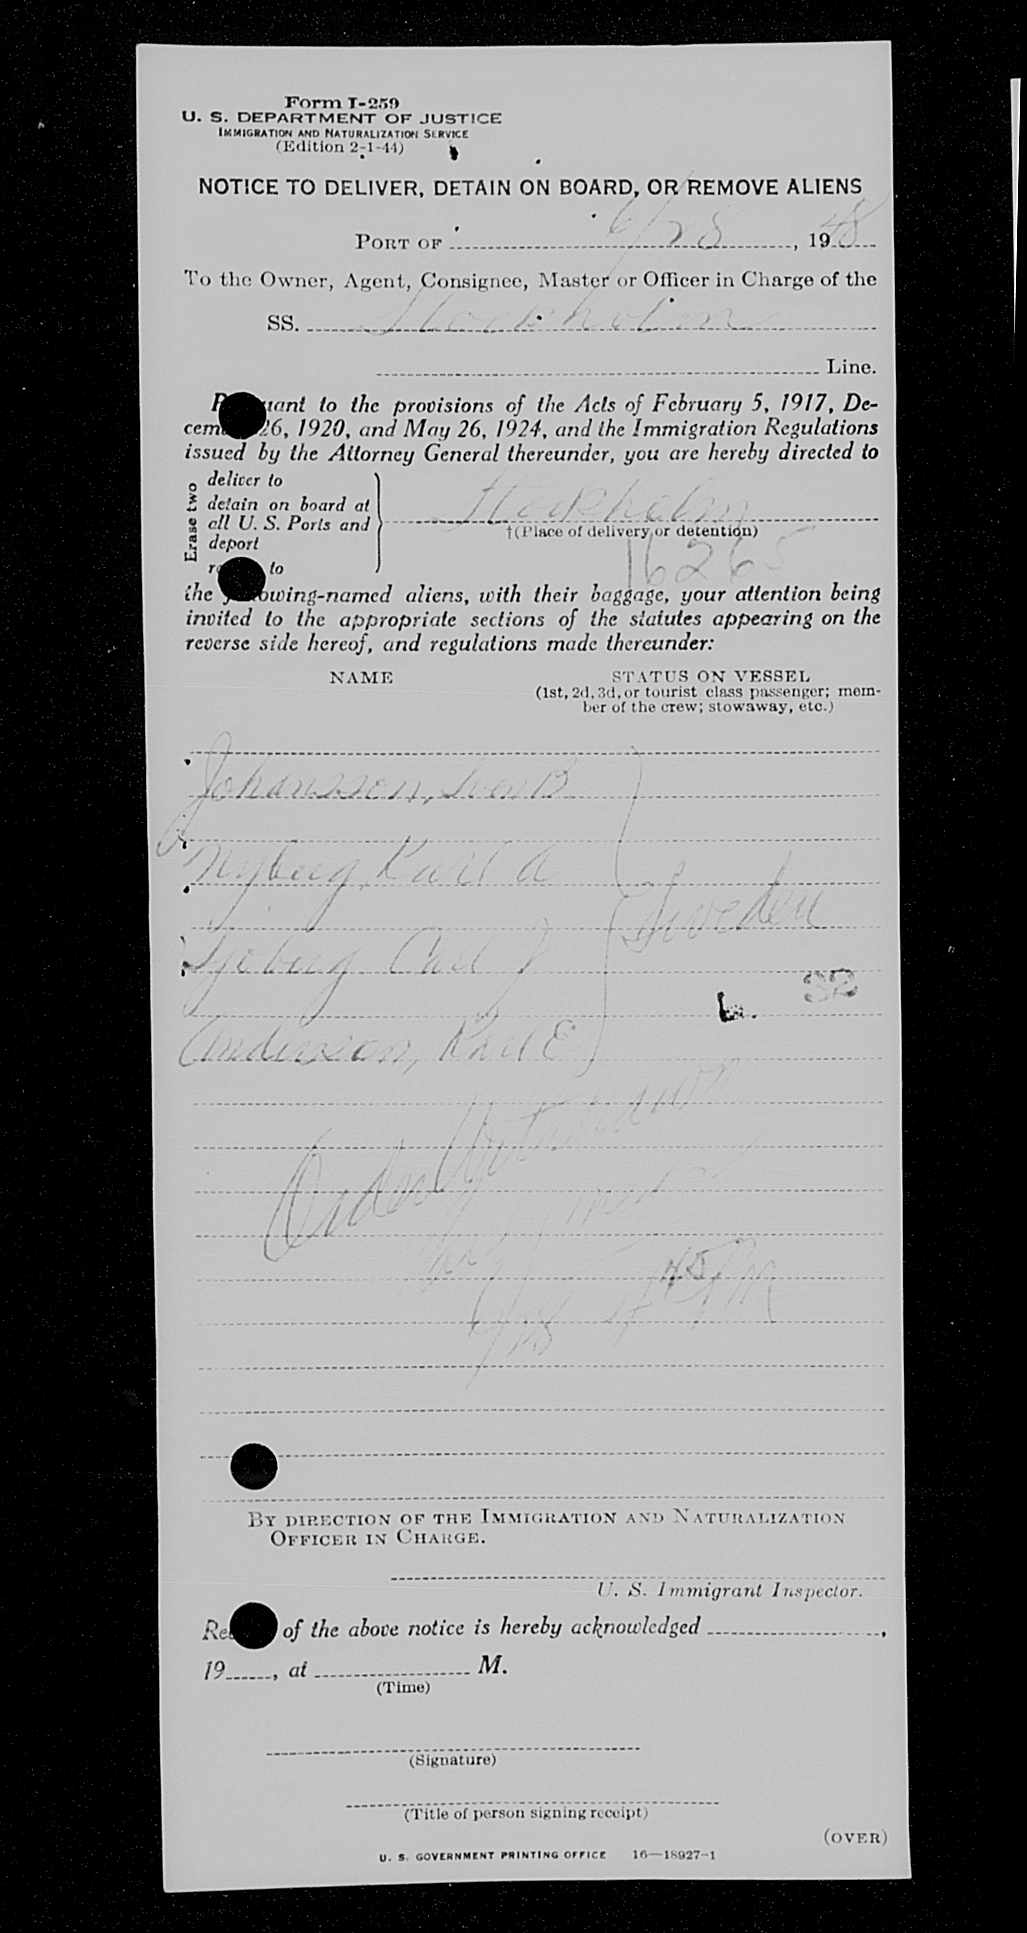 Form I-259
U. S. DEPARTMENT OF JUSTICE
IMMIGRATION AND NATURALIZATION SERVICE
(Edition 2-1-44)
NOTICE TO DELIVER, DETAIN ON BOARD, OR REMOVE ALIENS
PORT OF 6/28, 1948
To the Owner, Agent, Consignee, Master or Officer in Charge of the
SS. Stockholm
Line.
P uant to the provisions of the Acts of February 5, 1917, De-
cem 26, 1920, and May 26, 1924, and the Immigration Regulations
issued by the Attorney General thereunder, you are hereby directed to
Erase two
deliver to
detain on board at
all U. S. Ports and
deport
re to
Stockholm
†(Place of delivery or detention)
16265
the f owing-named aliens, with their baggage, your attention being
invited to the appropriate sections of the statutes appearing on the
reverse side hereof, and regulations made thereunder:
NAME
STATUS ON VESSEL
(1st, 2d, 3d, or tourist class passenger; mem-
ber of the crew; stowaway, etc.)
Johansson, Sven B
Nyberg, Karl A
Sweden
Sjoberg Carl J
32
Anderson, Karl E
Order
6/28 4 45 PM
BY DIRECTION OF THE IMMIGRATION AND NATURALIZATION
OFFICER IN CHARGE.
U. S. Immigrant Inspector.
Re of the above notice is hereby acknowledged ,
19 , at M.
(Time)
(Signature)
(Title of person signing receipt)
(OVER)
U. S. GOVERNMENT PRINTING OFFICE 16—18927-1